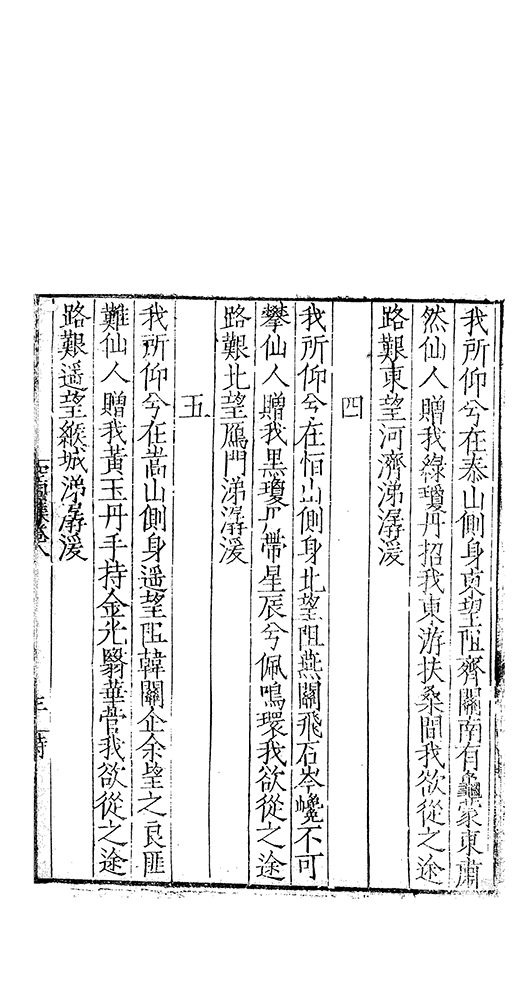 我所仰兮在泰山側身東望阻齊關南有龜蒙東肅
然仙人贈我綠瓊丹招我東游扶桑間我欲從之途
路艱東望河濟涕潺湲
四
我所仰兮在恒山側身北望阻燕關飛石岑巉不可
攀仙人贈我黑瓊丹帶星辰兮佩鳴環我欲從之途
路艱北望鴈門涕潺湲
五
我所仰兮在嵩山側身遥望阻韓關企余望之良匪
難仙人贈我黃玉丹手持金光翳華菅我欲從之途
路艱遥望緱城涕潺湲
卷八
三